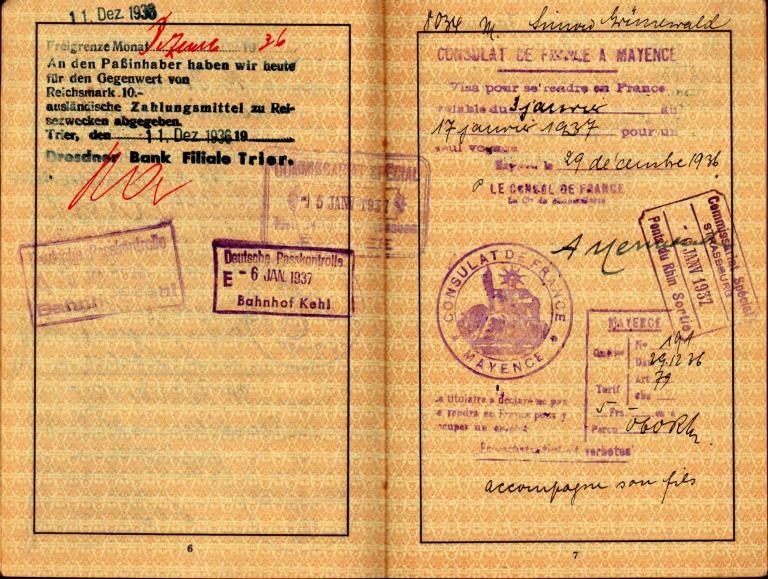 11. Dez. 1936
Freigrenze Monat Dezemb. 1936
An den Paßinhaber haben wir heute
für den Gegenwert von
Reichsmark .10.-
ausländische Zahlungsmittel zu Rei-
sezwecken abgegeben.
Trier, den 11. Dez. 1936 19
Dresdner Bank Filiale Trier.
COMMISSARIAT SPÉCIAL
5 JANV 1937
Deutsche Passkontrolle
A
Bahnhof Kehl
Deutsche Passkontrolle
E -6 JAN. 1937
Bahnhof Kehl
6
8034 M. Simon Grünewald
CONSULAT DE FRANCE A MAYENCE
Visa pour se rendre en France
valable du 3 janvier au
17 janvier 1937 pour un
seul voyage
le 29 décembre 1936
P LE CONSUL DE FRANCE
Commissariat Spécial
STRASBOURG
JANV 1937
Pont du Rhin Sortie
CONSULAT DE FRANCE
MAYENCE
MAYENCE
No 191
29.12.36
Art 79
Tarif
5 Frs.
Percu
Le titulaire a déclaré ne pas
se rendre en France pour y
occuper un emploi
verboten
accompagne son fils
7